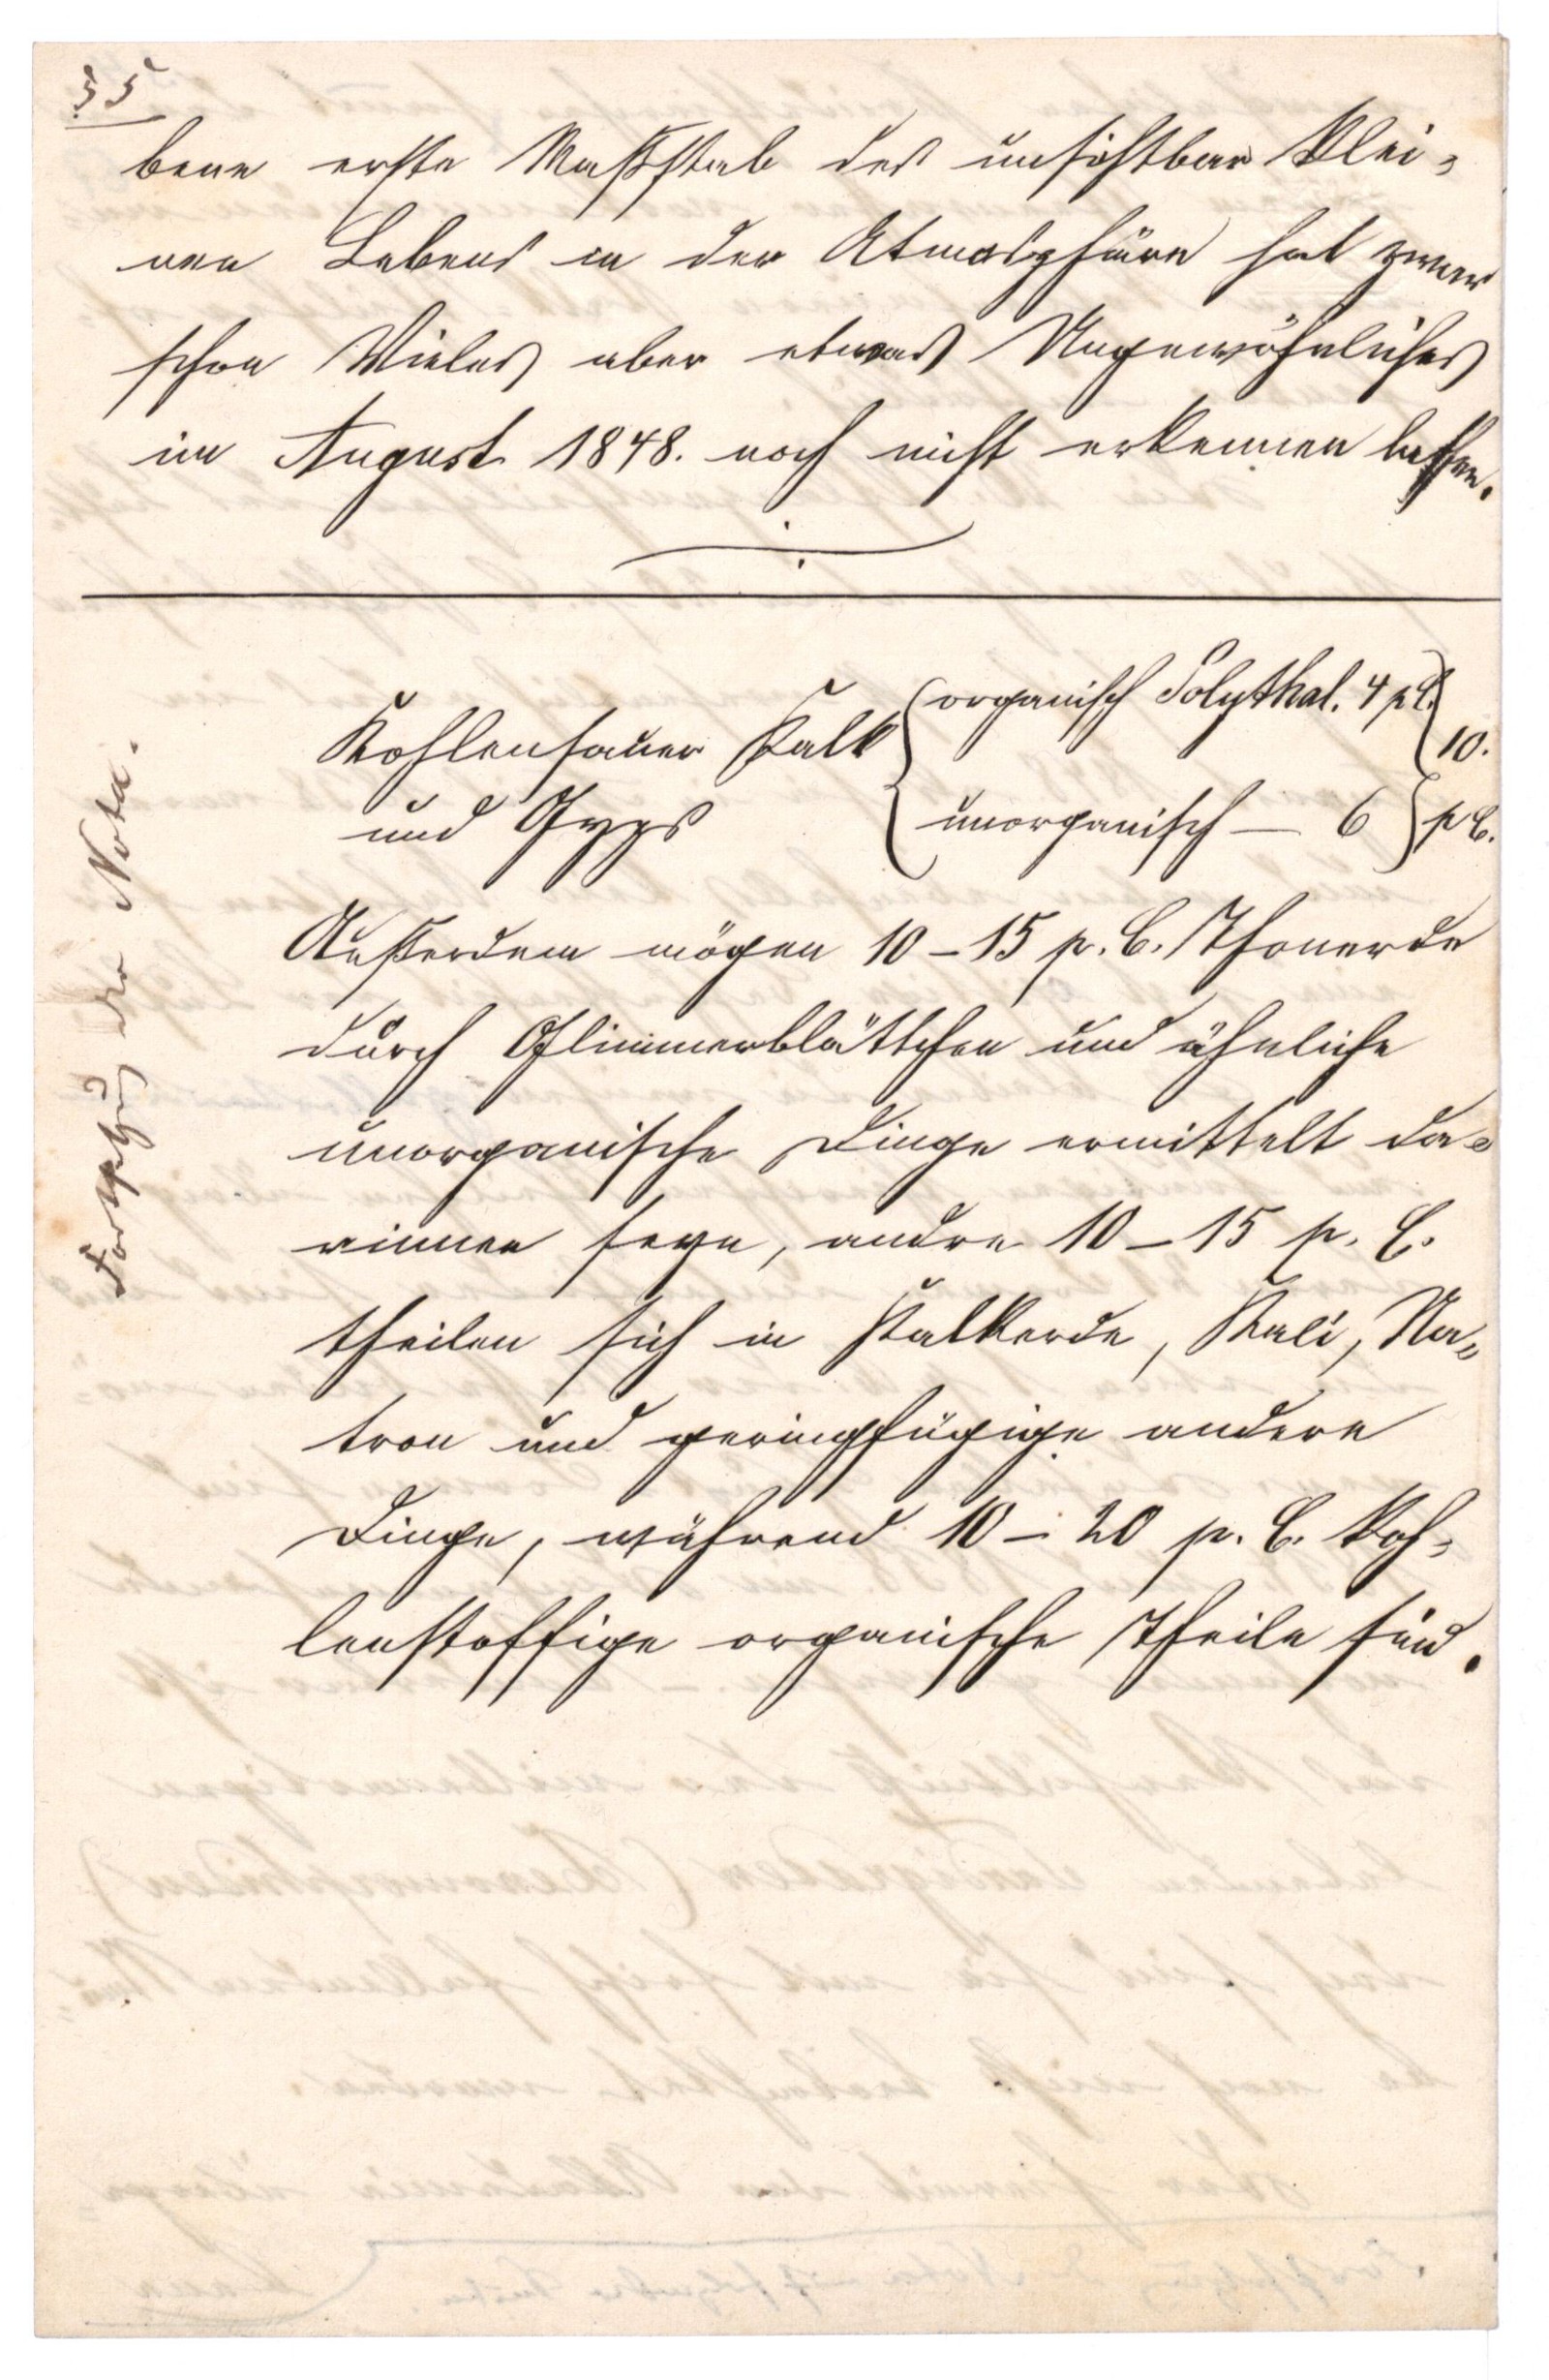 35
bene erste Maßstab des unsichtbar klei-
nen Lebens in der Atmosphäre hat zwar
schon Vieles aber etwas Ungewöhnliches
im August 1848. noch nicht erkennen lassen.
Kohlensaurer Kalk { organisch Polythal. 4 pC. } 10.
und Gyps { unorganisch — 6 } pC.
Außerdem mögen 10–15 p. C. Thonerde
durch Glimmerblättchen und ähnliche
unorganische Dinge ermittelt da-
rinnen seyn, andre 10–15 p. C.
theilen sich in Talkerde, Kali, Na-
tron und geringfügige andere
Dinge, während 10–20 p. C. koh-
lenstoffige organische Theile sind.
Fortsetzung der Nota.